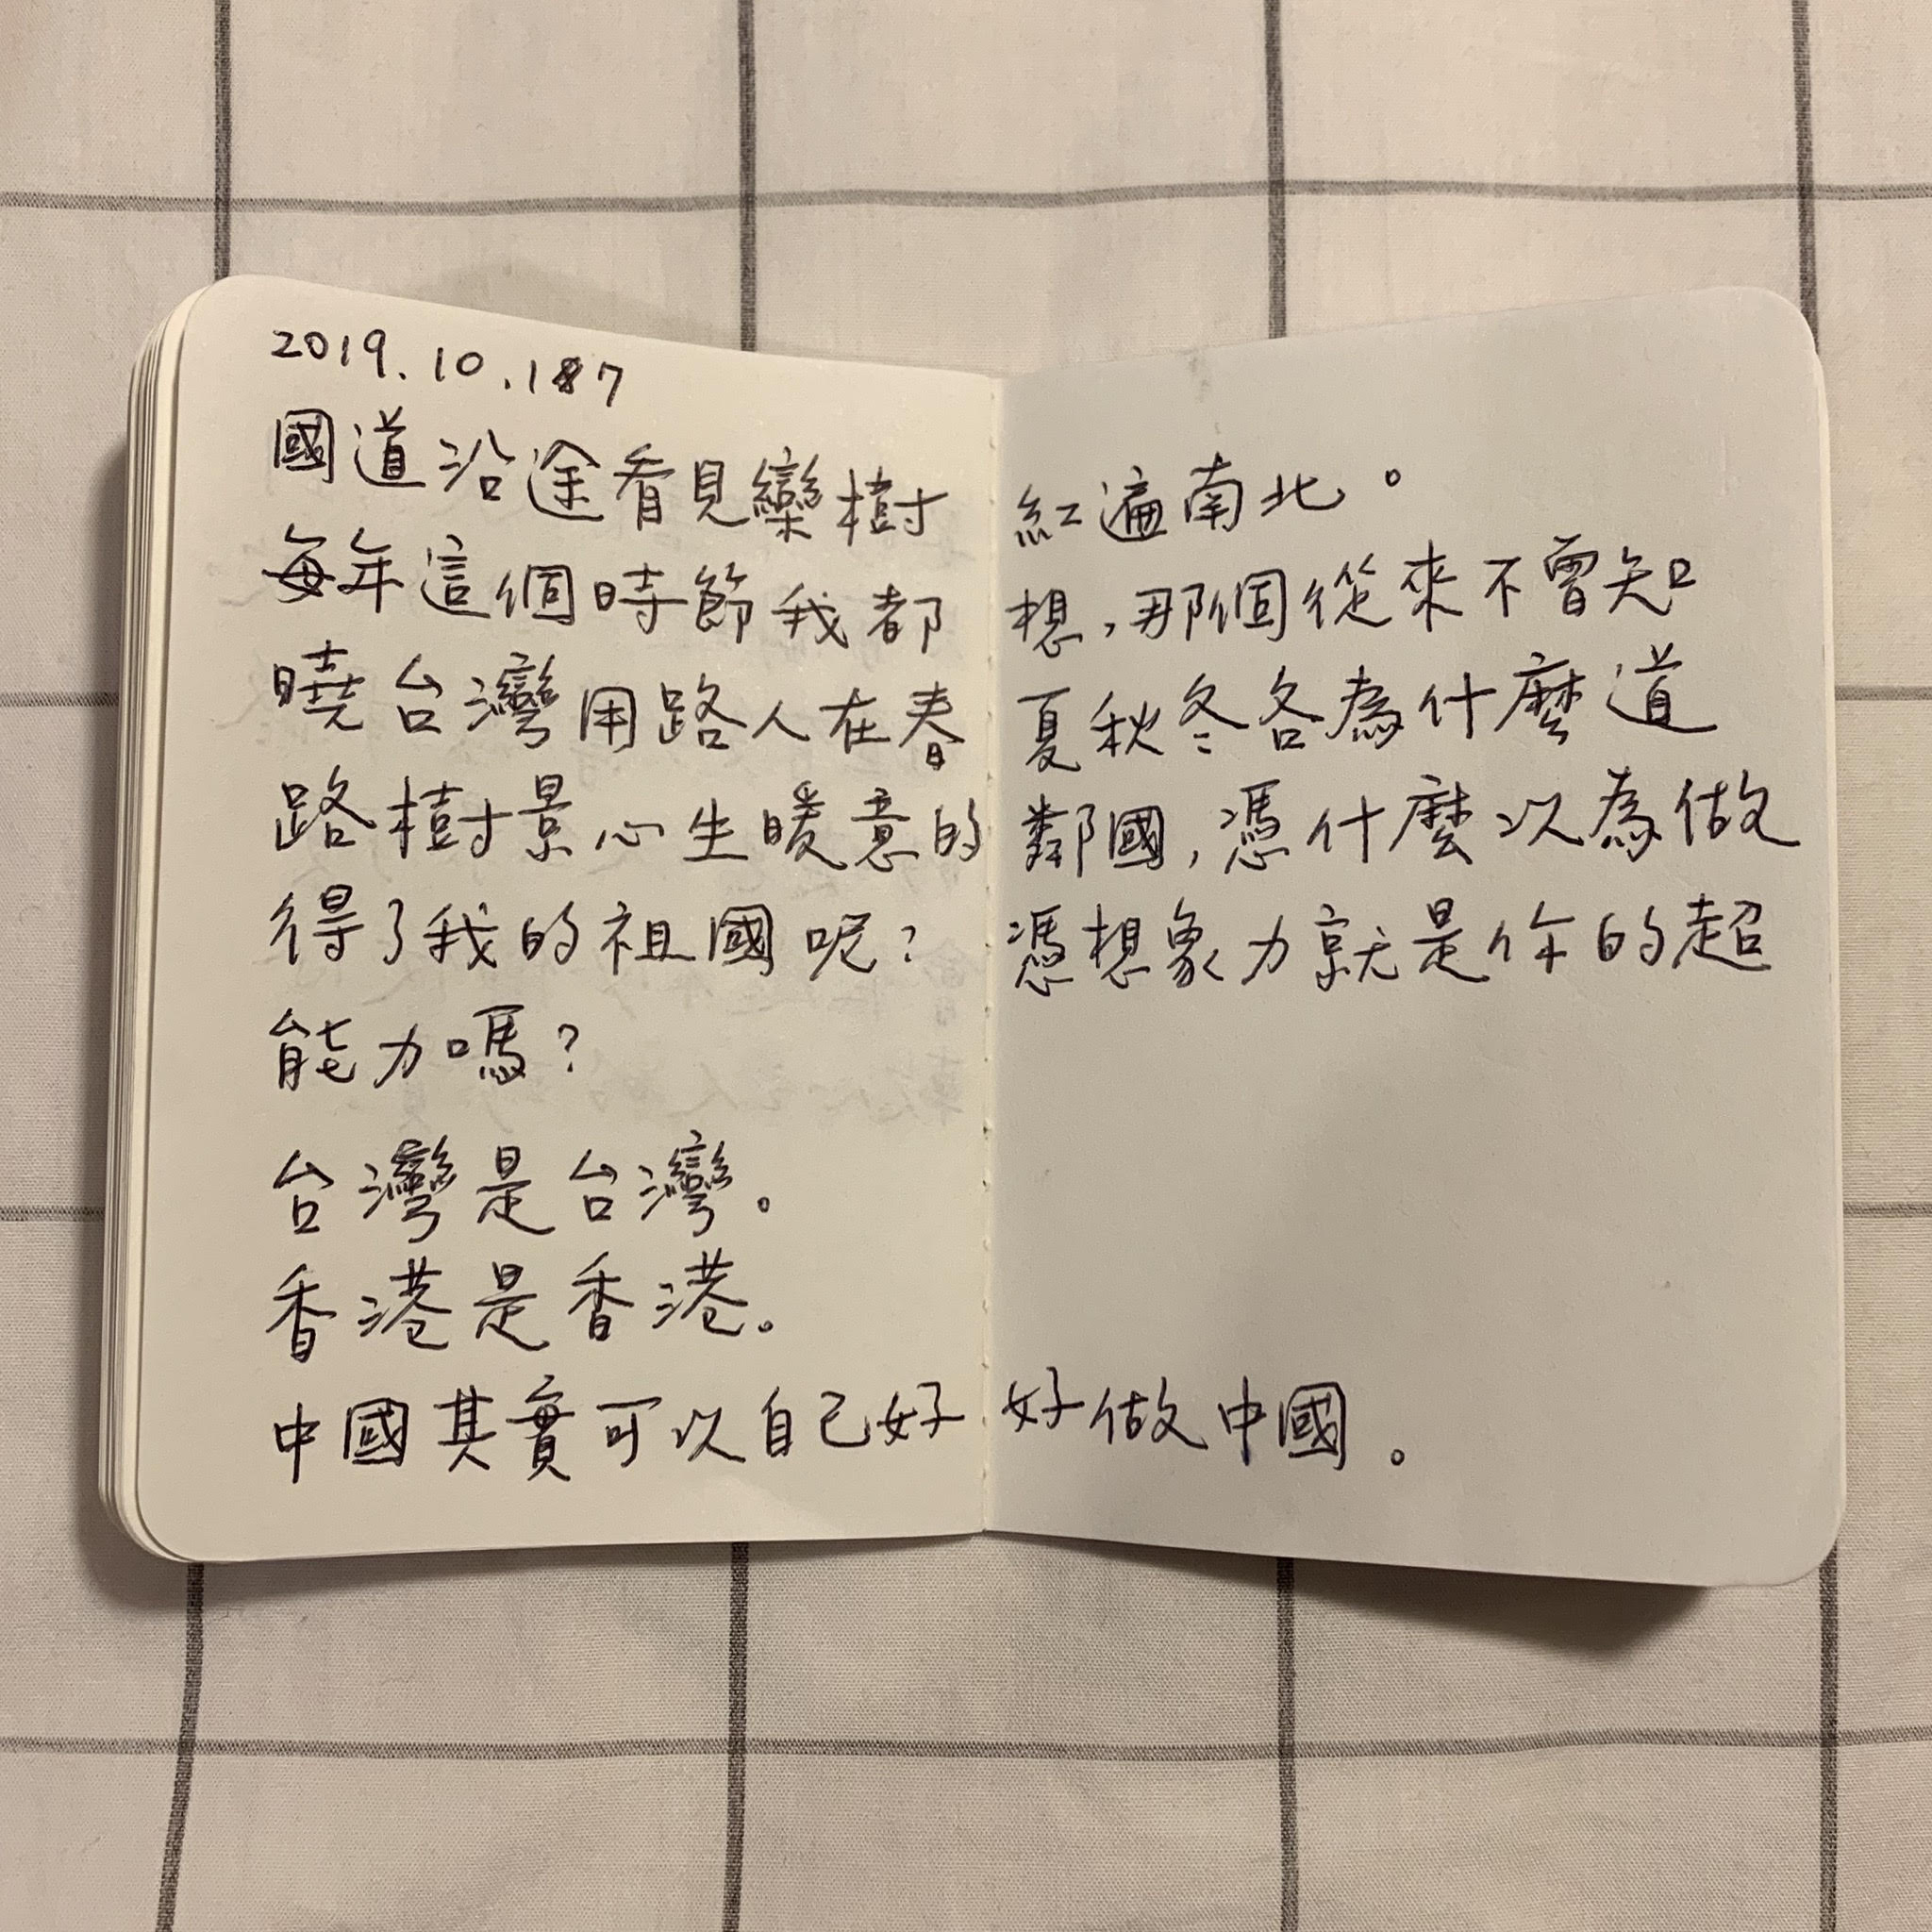 2019.10.17
國道沿途看見欒樹紅遍南北。
每年這個時節我都想,那個從來不曾知
曉台灣用路人在春夏秋冬各為什麼道
路樹景心生暖意的鄰國,憑什麼以為做
得了我的祖國呢?憑想象力就是你的超
能力嗎?
台灣是台灣。
香港是香港。
中國其實可以自己好好做中國。